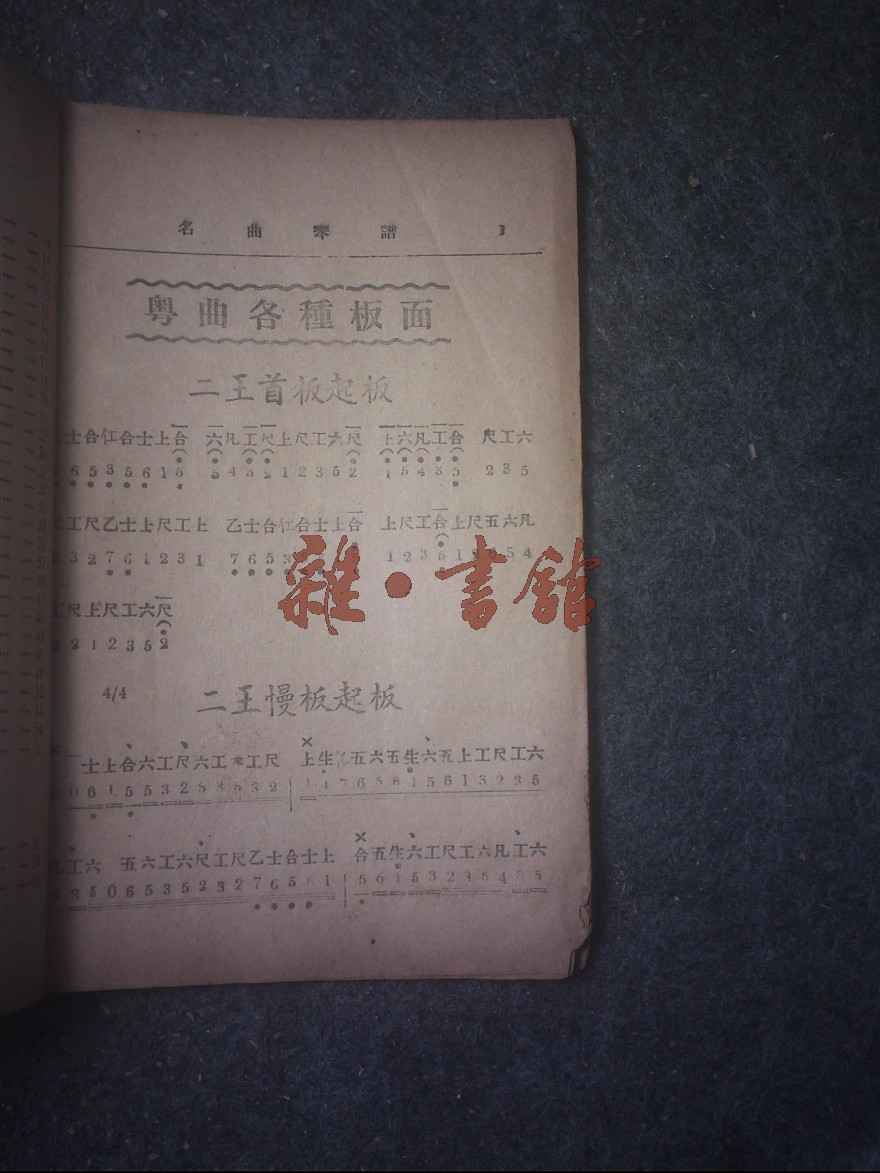 名曲琴譜 1
粵曲各種板面
二王首板起板
士合仜合士上合 六凡工尺上尺工六尺 上六凡工合 尺工六
6 5 3 5 6 1 5 5 4 3 2 1 2 3 5 2 1 5 4 3 5 2 3 5
工尺乙士上尺工上 乙士合仜合士上合 上尺工合上尺五六凡
3 2 7 6 1 2 3 1 7 6 5 3 1 2 3 5 1 2 6 5 4
尺上尺工六尺
2 1 2 3 5 2
雜·書館
4/4 二王慢板起板
士上合六工尺六工 工尺 上生 五六五生六五上工尺工六
0 6 1 5 5 3 2 5 3 3 2 1 1 7 6 5 6 1 5 6 1 3 2 3 5
工六 五六工六尺工尺乙士合士上 合五生六工尺工六凡工六
3 5 0 6 5 3 5 2 3 2 7 6 5 6 1 5 6 1 5 3 2 3 5 4 3 5